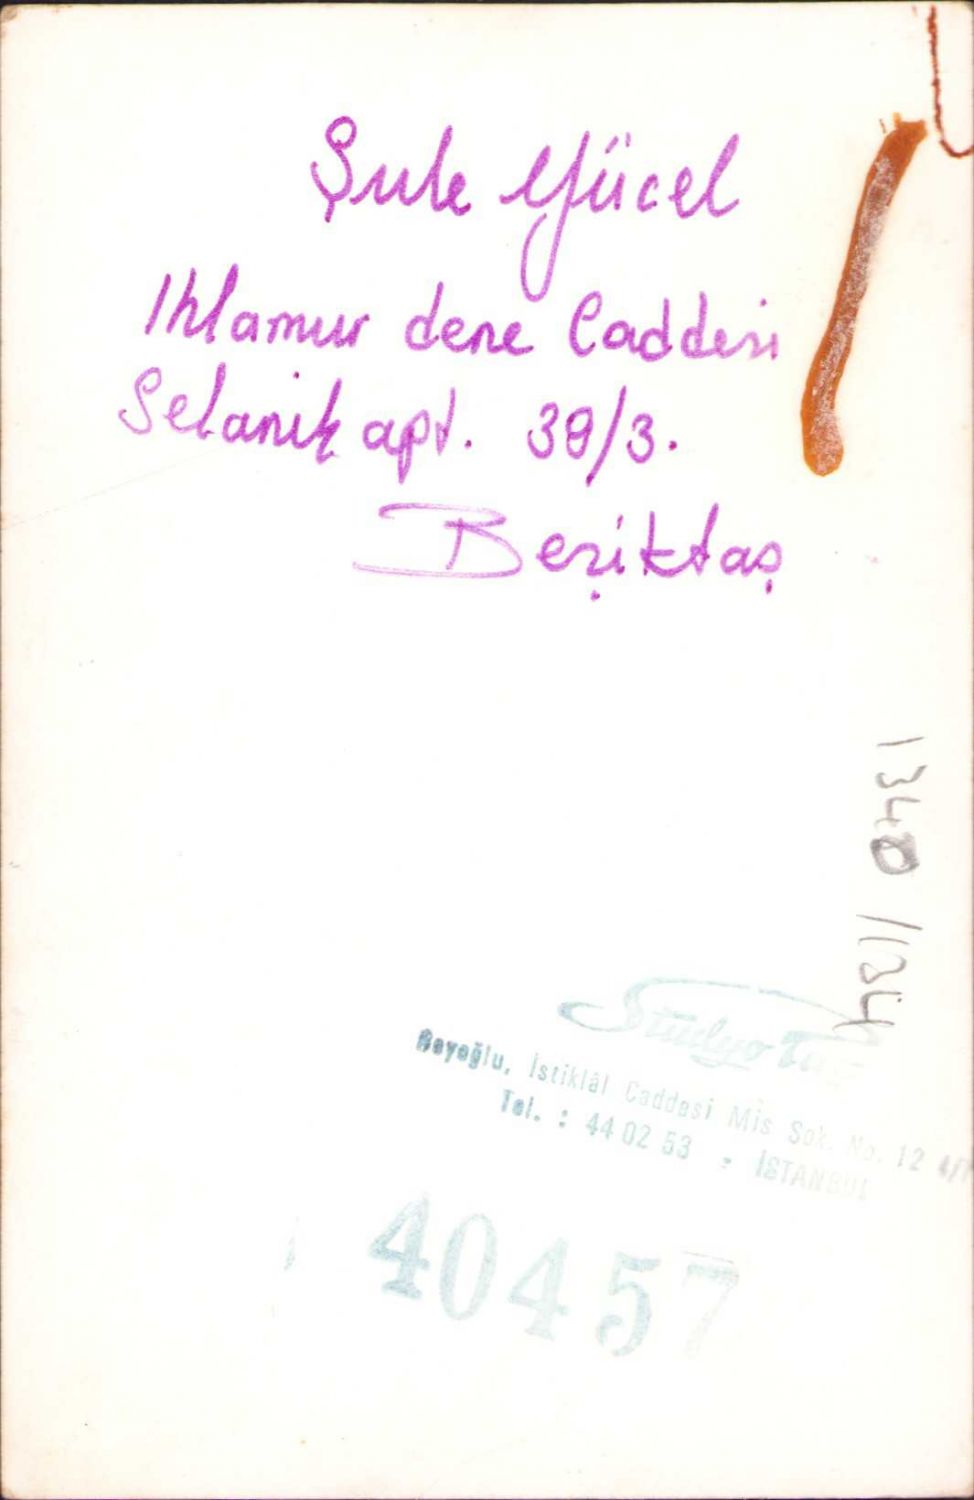 Şule Yücel
Ihlamur dere Caddesi
Selanik apt. 39/3.
Beşiktaş
1340 /1134
Stüdyo
Beyoğlu, İstiklâl Caddesi Mis Sok. No. 12
Tel. : 44 02 53 - İSTANBUL
40457